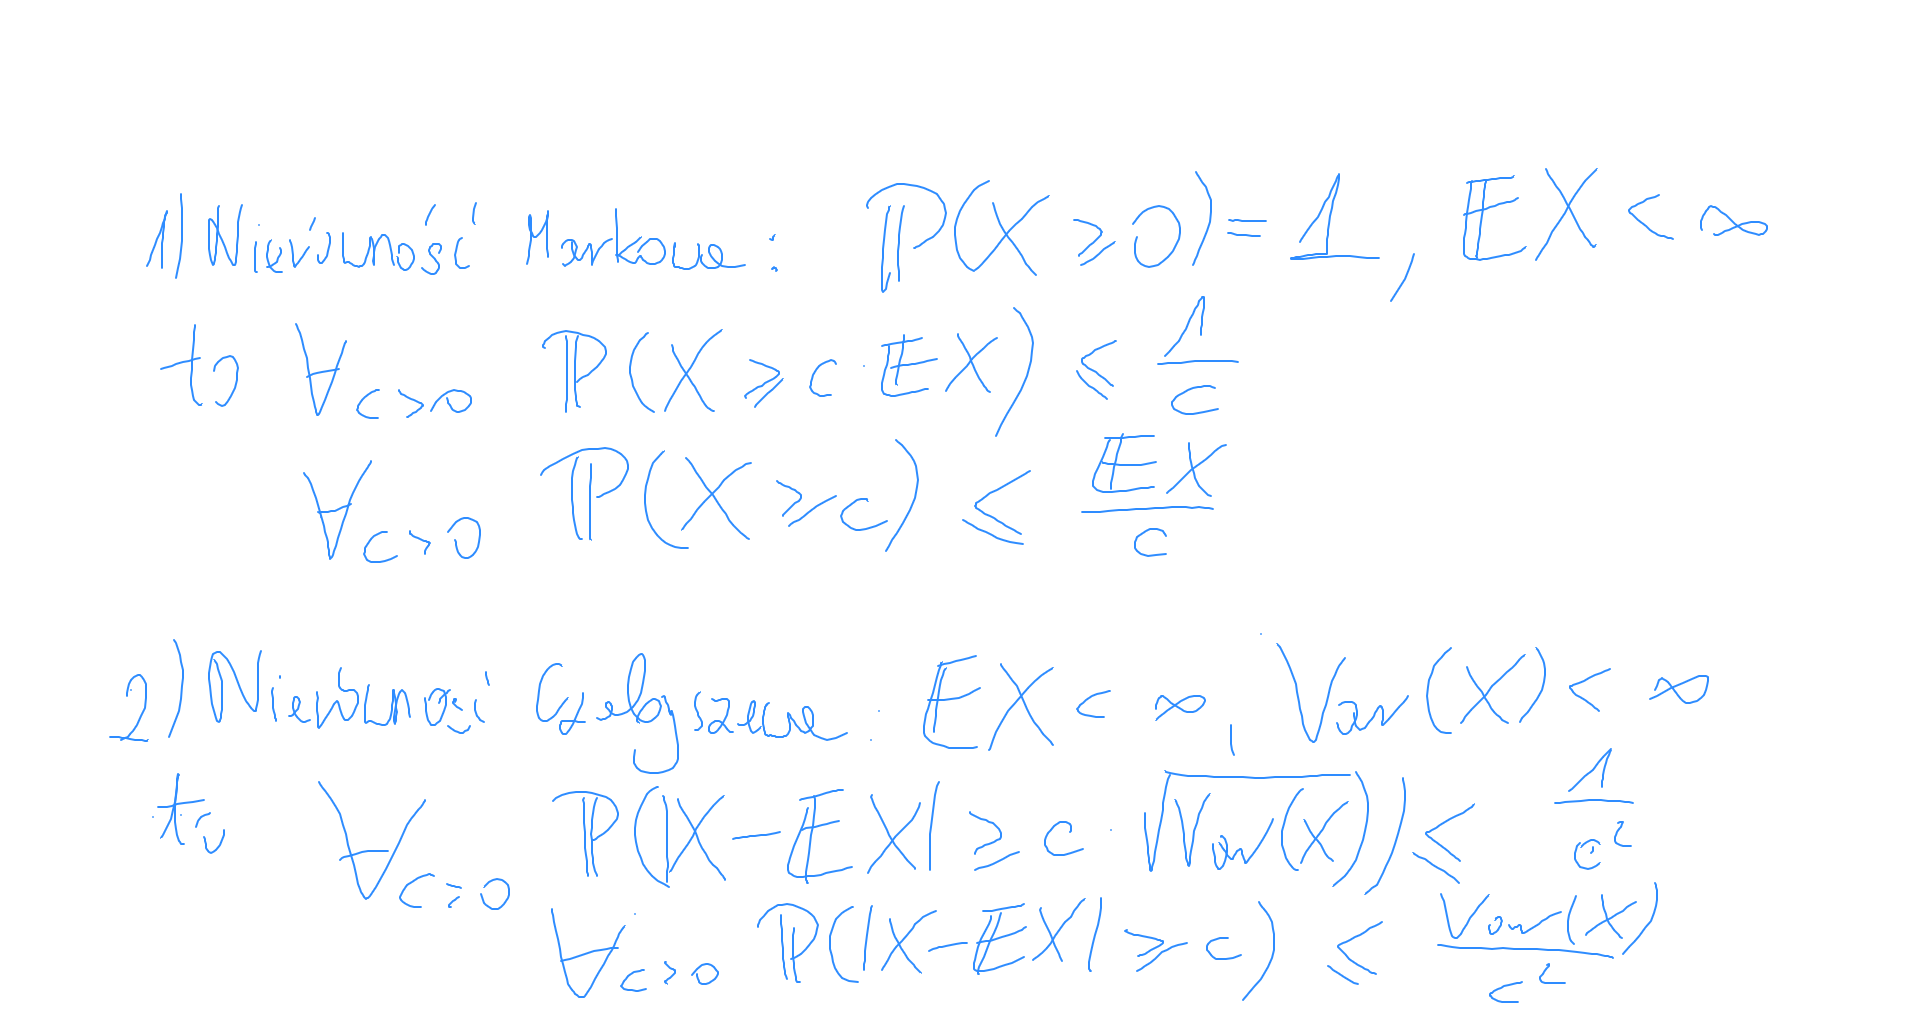 1) Nierówność Markowa: ℙ(X ≥ 0) = 1, 𝔼X < ∞
to ∀_{c>0} ℙ(X ≥ c · 𝔼X) ≤ 1/c
∀_{c>0} ℙ(X ≥ c) ≤ 𝔼X/c
2) Nierówność Czebyszewa: 𝔼X < ∞, Var(X) < ∞
to ∀_{c>0} ℙ(|X − 𝔼X| ≥ c · √Var(X)) ≤ 1/c²
∀_{c>0} ℙ(|X − 𝔼X| ≥ c) ≤ Var(X)/c²